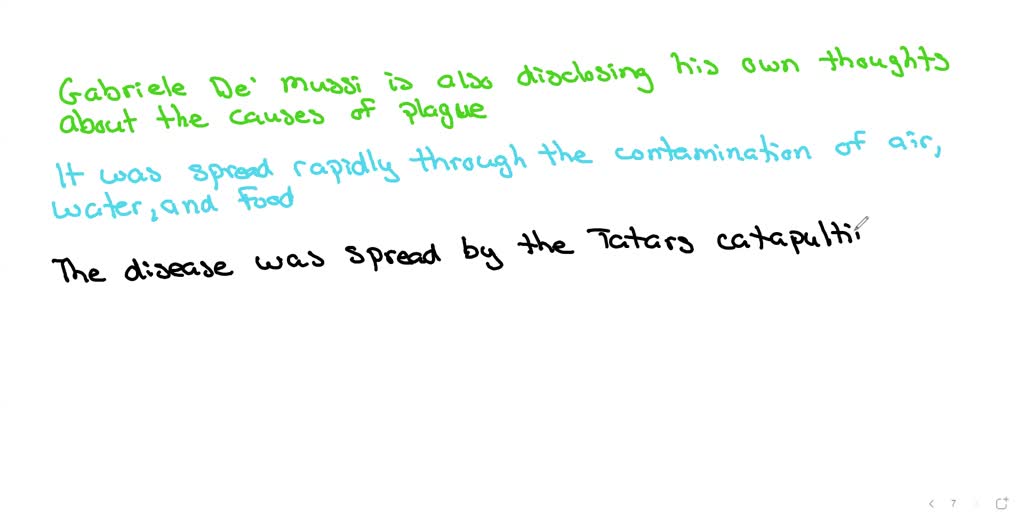 Gabriele De' Mussi is also disclosing his own thoughts
about the causes of plague
It was spread rapidly through the contamination of air,
water, and food
The disease was spread by the Tatars catapulti
7